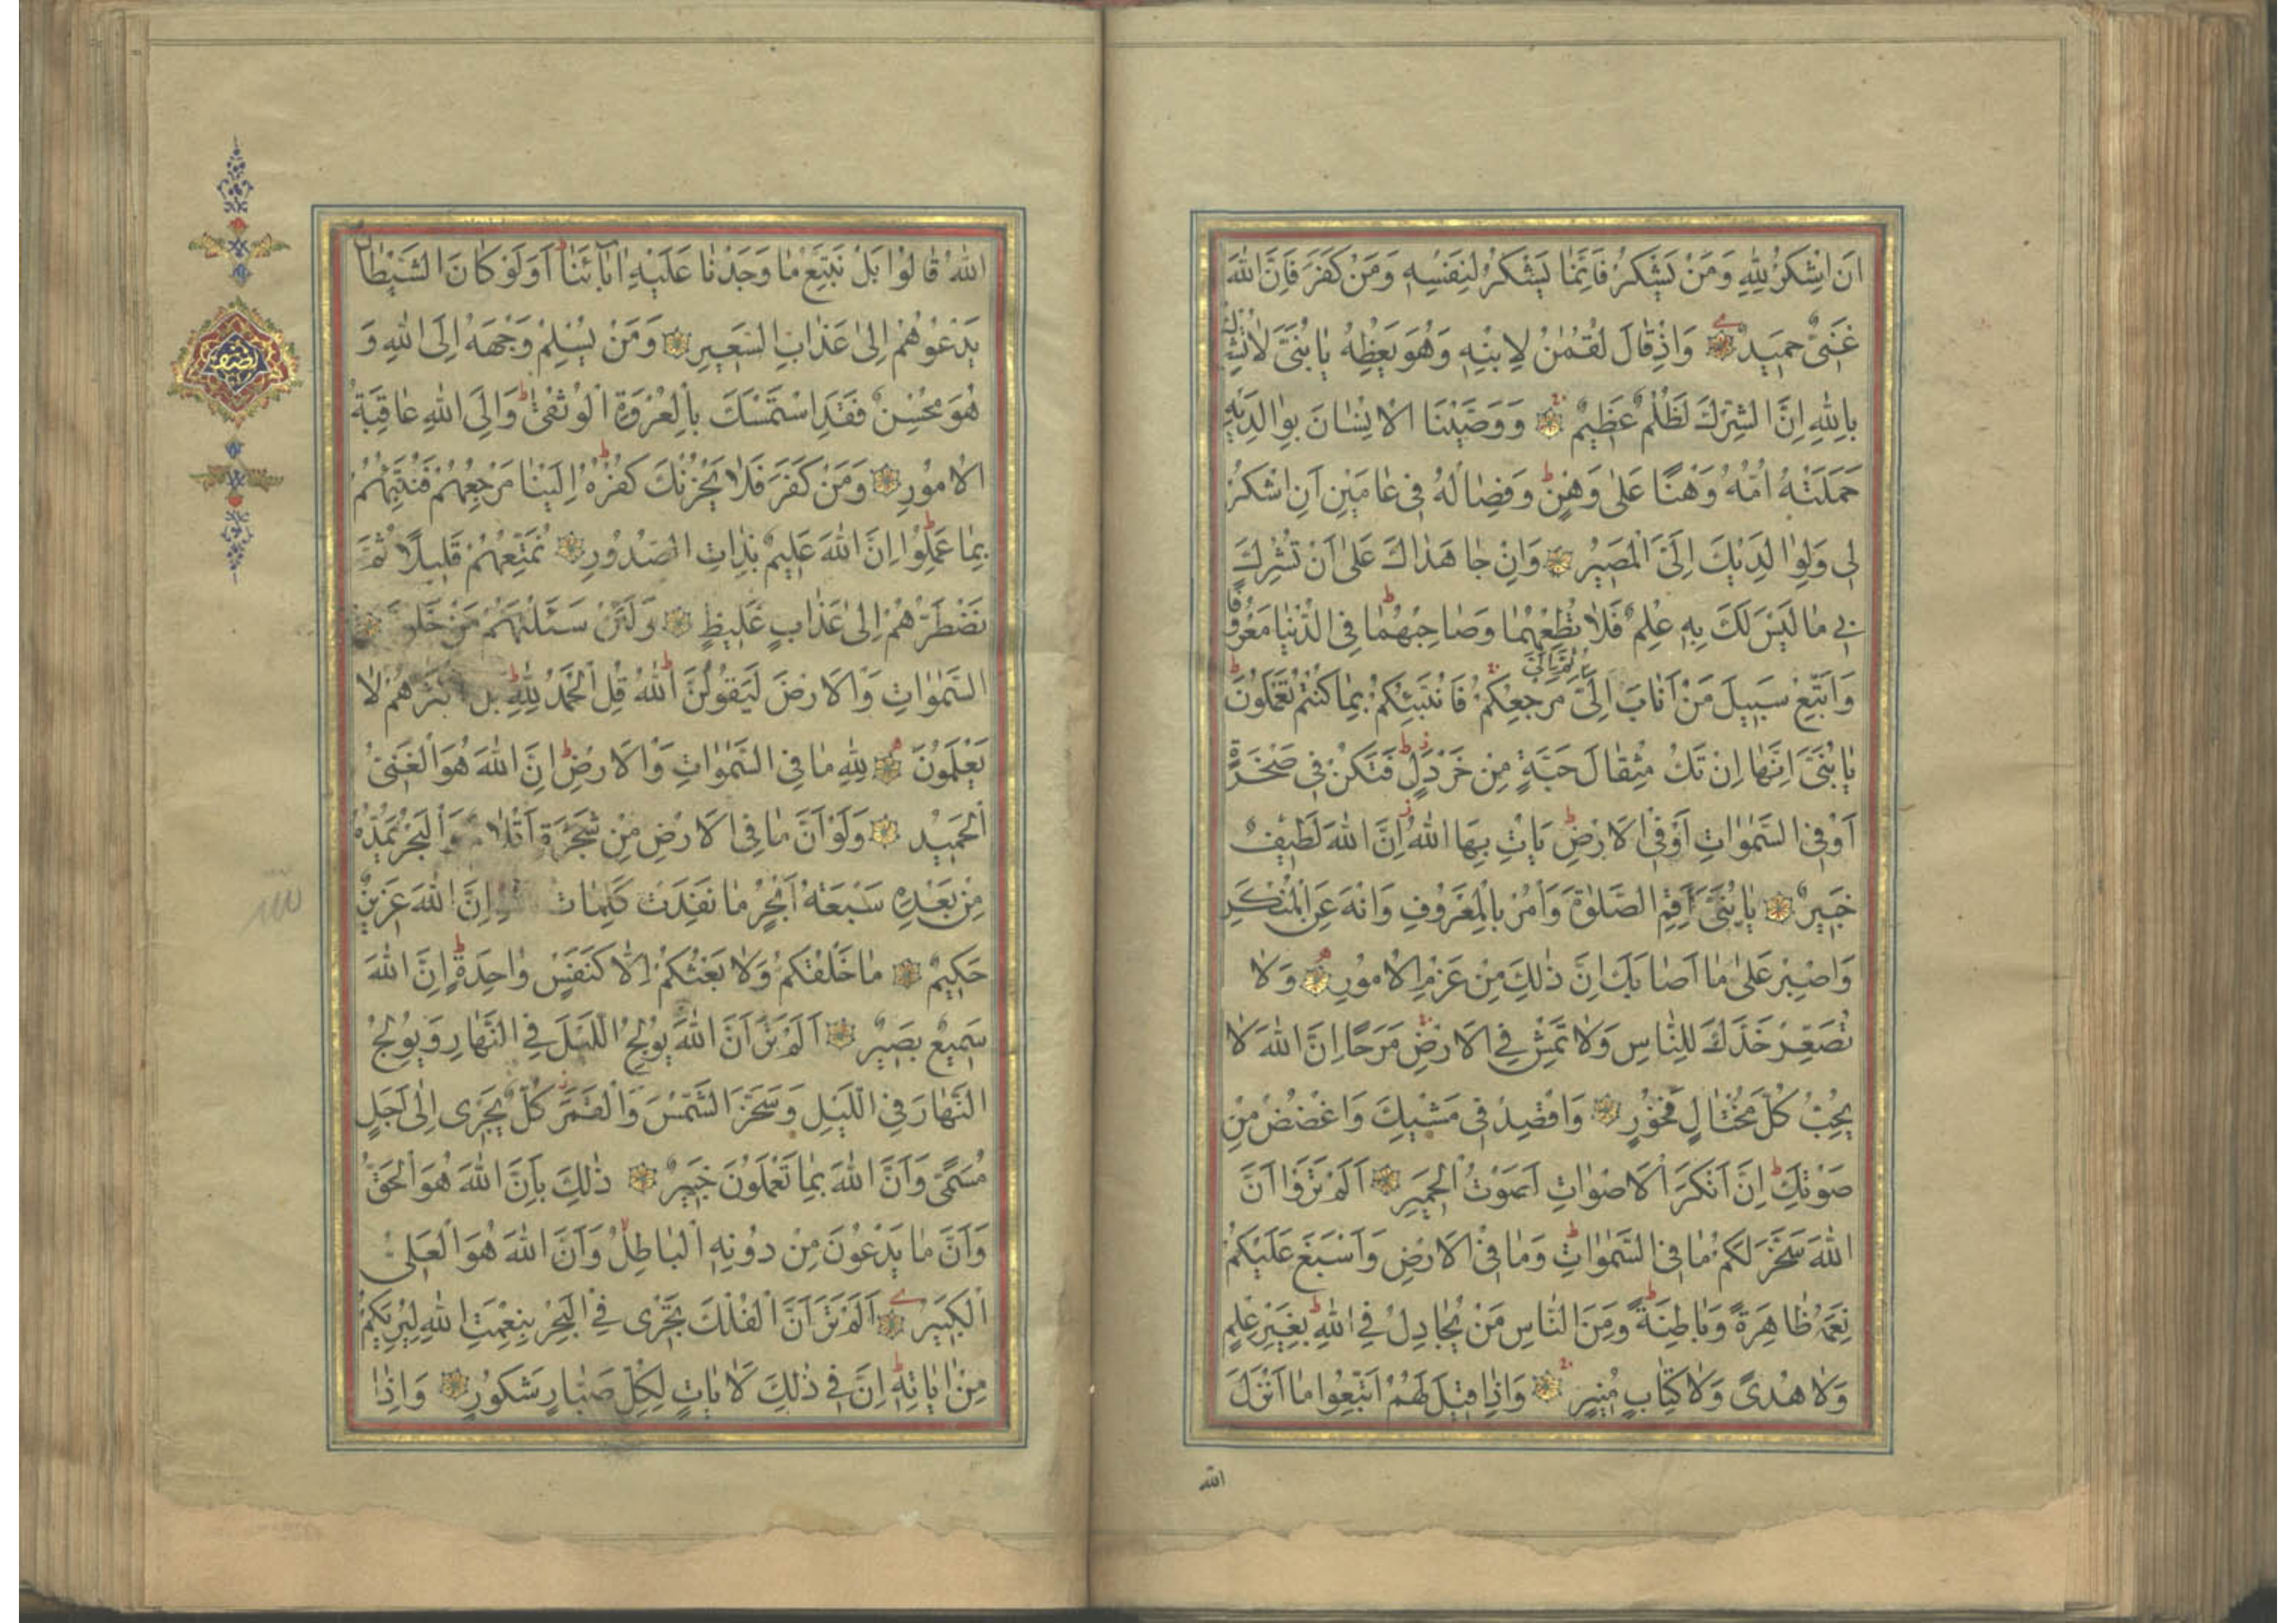 اَنِ اشْكُرْ لِلّٰهِ وَمَنْ يَشْكُرْ فَاِنَّمَا يَشْكُرُ لِنَفْسِهِ وَمَنْ كَفَرَ فَاِنَّ اللّٰهَ
غَنِىٌّ حَمِيدٌ وَاِذْ قَالَ لُقْمٰنُ لِابْنِهِ وَهُوَ يَعِظُهُ يَا بُنَىَّ لَا تُشْرِكْ
بِاللّٰهِ اِنَّ الشِّرْكَ لَظُلْمٌ عَظِيمٌ وَوَصَّيْنَا الْاِنْسَانَ بِوَالِدَيْهِ
حَمَلَتْهُ اُمُّهُ وَهْنًا عَلٰى وَهْنٍ وَفِصَالُهُ فِى عَامَيْنِ اَنِ اشْكُرْ
لِى وَلِوَالِدَيْكَ اِلَىَّ الْمَصِيرُ وَاِنْ جَاهَدَاكَ عَلٰى اَنْ تُشْرِكَ
بِى مَا لَيْسَ لَكَ بِهِ عِلْمٌ فَلَا تُطِعْهُمَا وَصَاحِبْهُمَا فِى الدُّنْيَا مَعْرُوفًا
وَاتَّبِعْ سَبِيلَ مَنْ اَنَابَ اِلَىَّ ثُمَّ اِلَىَّ مَرْجِعُكُمْ فَاُنَبِّئُكُمْ بِمَا كُنْتُمْ تَعْمَلُونَ
يَا بُنَىَّ اِنَّهَا اِنْ تَكُ مِثْقَالَ حَبَّةٍ مِنْ خَرْدَلٍ فَتَكُنْ فِى صَخْرَةٍ
اَوْ فِى السَّمٰوَاتِ اَوْ فِى الْاَرْضِ يَاْتِ بِهَا اللّٰهُ اِنَّ اللّٰهَ لَطِيفٌ
خَبِيرٌ يَا بُنَىَّ اَقِمِ الصَّلٰوةَ وَاْمُرْ بِالْمَعْرُوفِ وَانْهَ عَنِ الْمُنْكَرِ
وَاصْبِرْ عَلٰى مَا اَصَابَكَ اِنَّ ذٰلِكَ مِنْ عَزْمِ الْاُمُورِ وَلَا
تُصَعِّرْ خَدَّكَ لِلنَّاسِ وَلَا تَمْشِ فِى الْاَرْضِ مَرَحًا اِنَّ اللّٰهَ لَا
يُحِبُّ كُلَّ مُخْتَالٍ فَخُورٍ وَاقْصِدْ فِى مَشْيِكَ وَاغْضُضْ مِنْ
صَوْتِكَ اِنَّ اَنْكَرَ الْاَصْوَاتِ لَصَوْتُ الْحَمِيرِ اَلَمْ تَرَوْا اَنَّ
اللّٰهَ سَخَّرَ لَكُمْ مَا فِى السَّمٰوَاتِ وَمَا فِى الْاَرْضِ وَاَسْبَغَ عَلَيْكُمْ
نِعَمَهُ ظَاهِرَةً وَبَاطِنَةً وَمِنَ النَّاسِ مَنْ يُجَادِلُ فِى اللّٰهِ بِغَيْرِ عِلْمٍ
وَلَا هُدًى وَلَا كِتَابٍ مُنِيرٍ وَاِذَا قِيلَ لَهُمُ اتَّبِعُوا مَا اَنْزَلَ
الله
اللّٰهُ قَالُوا بَلْ نَتَّبِعُ مَا وَجَدْنَا عَلَيْهِ اٰبَائَنَا اَوَلَوْ كَانَ الشَّيْطَانُ
يَدْعُوهُمْ اِلٰى عَذَابِ السَّعِيرِ وَمَنْ يُسْلِمْ وَجْهَهُ اِلَى اللّٰهِ وَ
هُوَ مُحْسِنٌ فَقَدِ اسْتَمْسَكَ بِالْعُرْوَةِ الْوُثْقٰى وَاِلَى اللّٰهِ عَاقِبَةُ
الْاُمُورِ وَمَنْ كَفَرَ فَلَا يَحْزُنْكَ كُفْرُهُ اِلَيْنَا مَرْجِعُهُمْ فَنُنَبِّئُهُمْ
بِمَا عَمِلُوا اِنَّ اللّٰهَ عَلِيمٌ بِذَاتِ الصُّدُورِ نُمَتِّعُهُمْ قَلِيلًا ثُمَّ
نَضْطَرُّهُمْ اِلٰى عَذَابٍ غَلِيظٍ وَلَئِنْ سَئَلْتَهُمْ مَنْ خَلَقَ
السَّمٰوَاتِ وَالْاَرْضَ لَيَقُولُنَّ اللّٰهُ قُلِ الْحَمْدُ لِلّٰهِ بَلْ اَكْثَرُهُمْ لَا
يَعْلَمُونَ لِلّٰهِ مَا فِى السَّمٰوَاتِ وَالْاَرْضِ اِنَّ اللّٰهَ هُوَ الْغَنِىُّ
الْحَمِيدُ وَلَوْ اَنَّ مَا فِى الْاَرْضِ مِنْ شَجَرَةٍ اَقْلَامٌ وَالْبَحْرُ يَمُدُّهُ
مِنْ بَعْدِهِ سَبْعَةُ اَبْحُرٍ مَا نَفِدَتْ كَلِمَاتُ اللّٰهِ اِنَّ اللّٰهَ عَزِيزٌ
حَكِيمٌ مَا خَلْقُكُمْ وَلَا بَعْثُكُمْ اِلَّا كَنَفْسٍ وَاحِدَةٍ اِنَّ اللّٰهَ
سَمِيعٌ بَصِيرٌ اَلَمْ تَرَ اَنَّ اللّٰهَ يُولِجُ اللَّيْلَ فِى النَّهَارِ وَيُولِجُ
النَّهَارَ فِى اللَّيْلِ وَسَخَّرَ الشَّمْسَ وَالْقَمَرَ كُلٌّ يَجْرِى اِلٰى اَجَلٍ
مُسَمًّى وَاَنَّ اللّٰهَ بِمَا تَعْمَلُونَ خَبِيرٌ ذٰلِكَ بِاَنَّ اللّٰهَ هُوَ الْحَقُّ
وَاَنَّ مَا يَدْعُونَ مِنْ دُونِهِ الْبَاطِلُ وَاَنَّ اللّٰهَ هُوَ الْعَلِىُّ
الْكَبِيرُ اَلَمْ تَرَ اَنَّ الْفُلْكَ تَجْرِى فِى الْبَحْرِ بِنِعْمَتِ اللّٰهِ لِيُرِيَكُمْ
مِنْ اٰيَاتِهِ اِنَّ فِى ذٰلِكَ لَاٰيَاتٍ لِكُلِّ صَبَّارٍ شَكُورٍ وَاِذَا